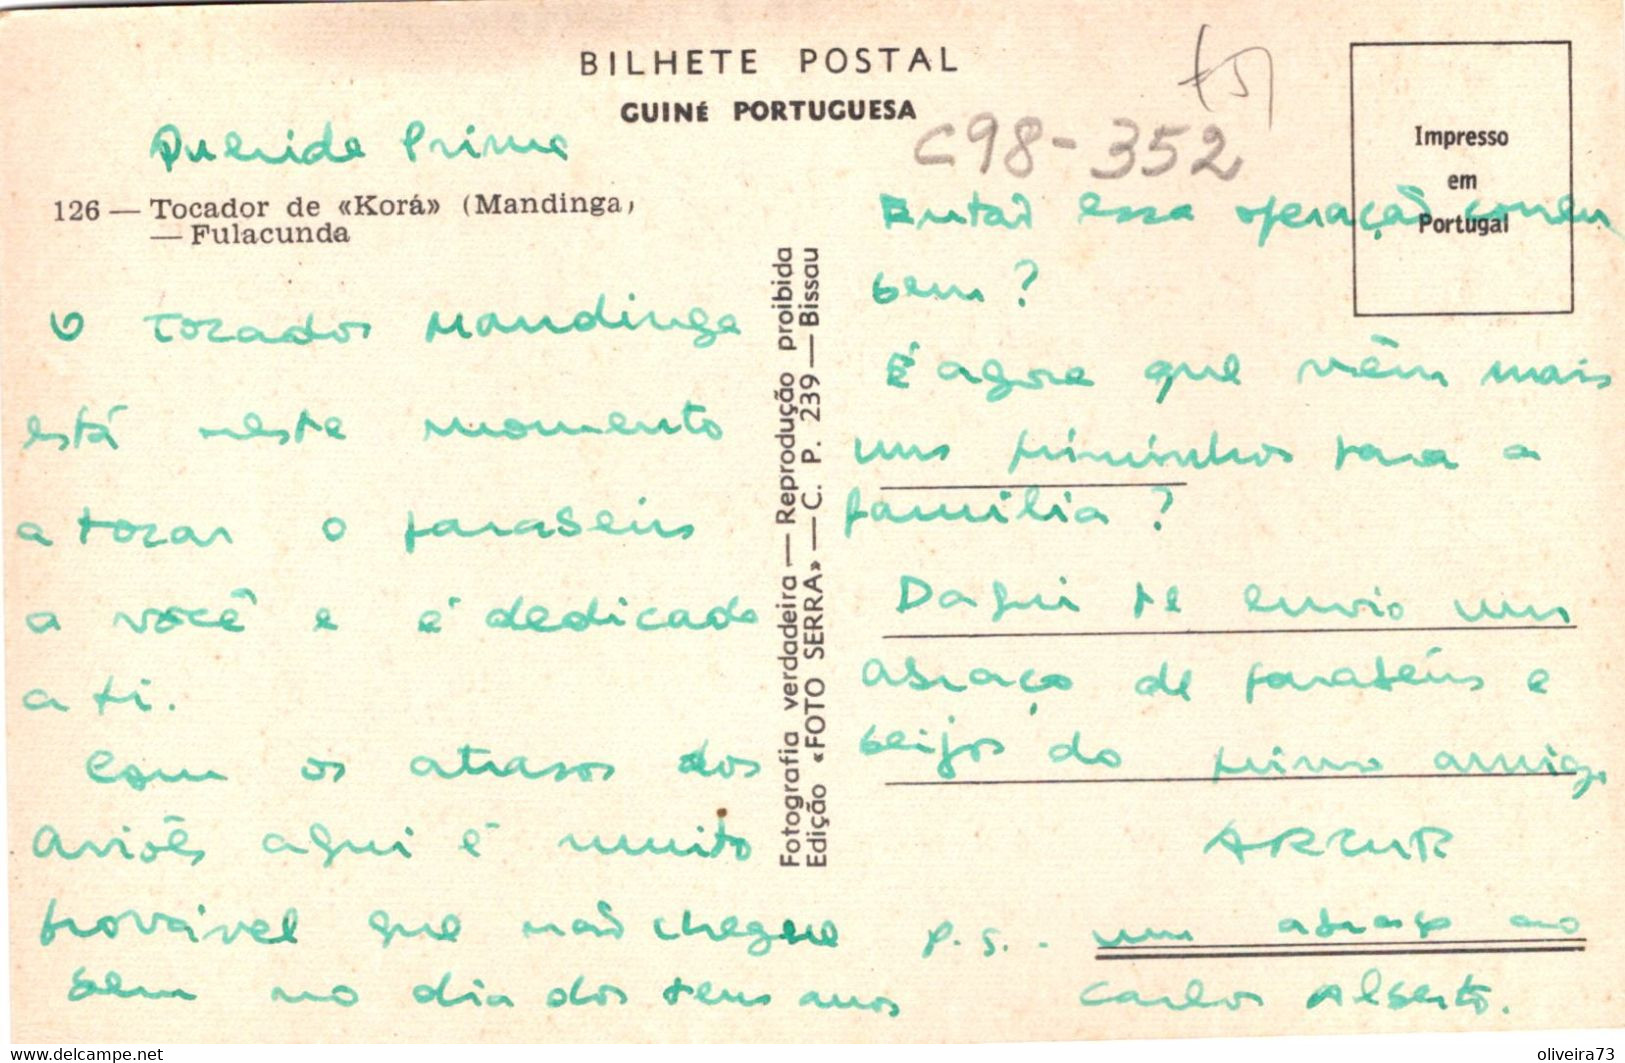 BILHETE POSTAL
GUINÉ PORTUGUESA
C98-352
Impresso
em
Portugal
Querida Prima
126 — Tocador de «Korá» (Mandinga)
— Fulacunda
O tocador Mandinga
está neste momento
a tocar o parabéns
a você e é dedicado
a ti.
Com os atrasos dos
aviões aqui é muito
provável que não chegue
bem no dia dos teus anos
Fotografia verdadeira — Reprodução proibida
Edição «FOTO SERRA» — C. P. 239 — Bissau
Então essa operação correu
bem?
É agora que vêm mais
uns priminhos para a
família?
Daqui te envio um
abraço de parabéns e
beijos do primo amigo
ARTUR
p.s.. um abraço ao
Carlos Alberto.
oliveira73
delcampe.net